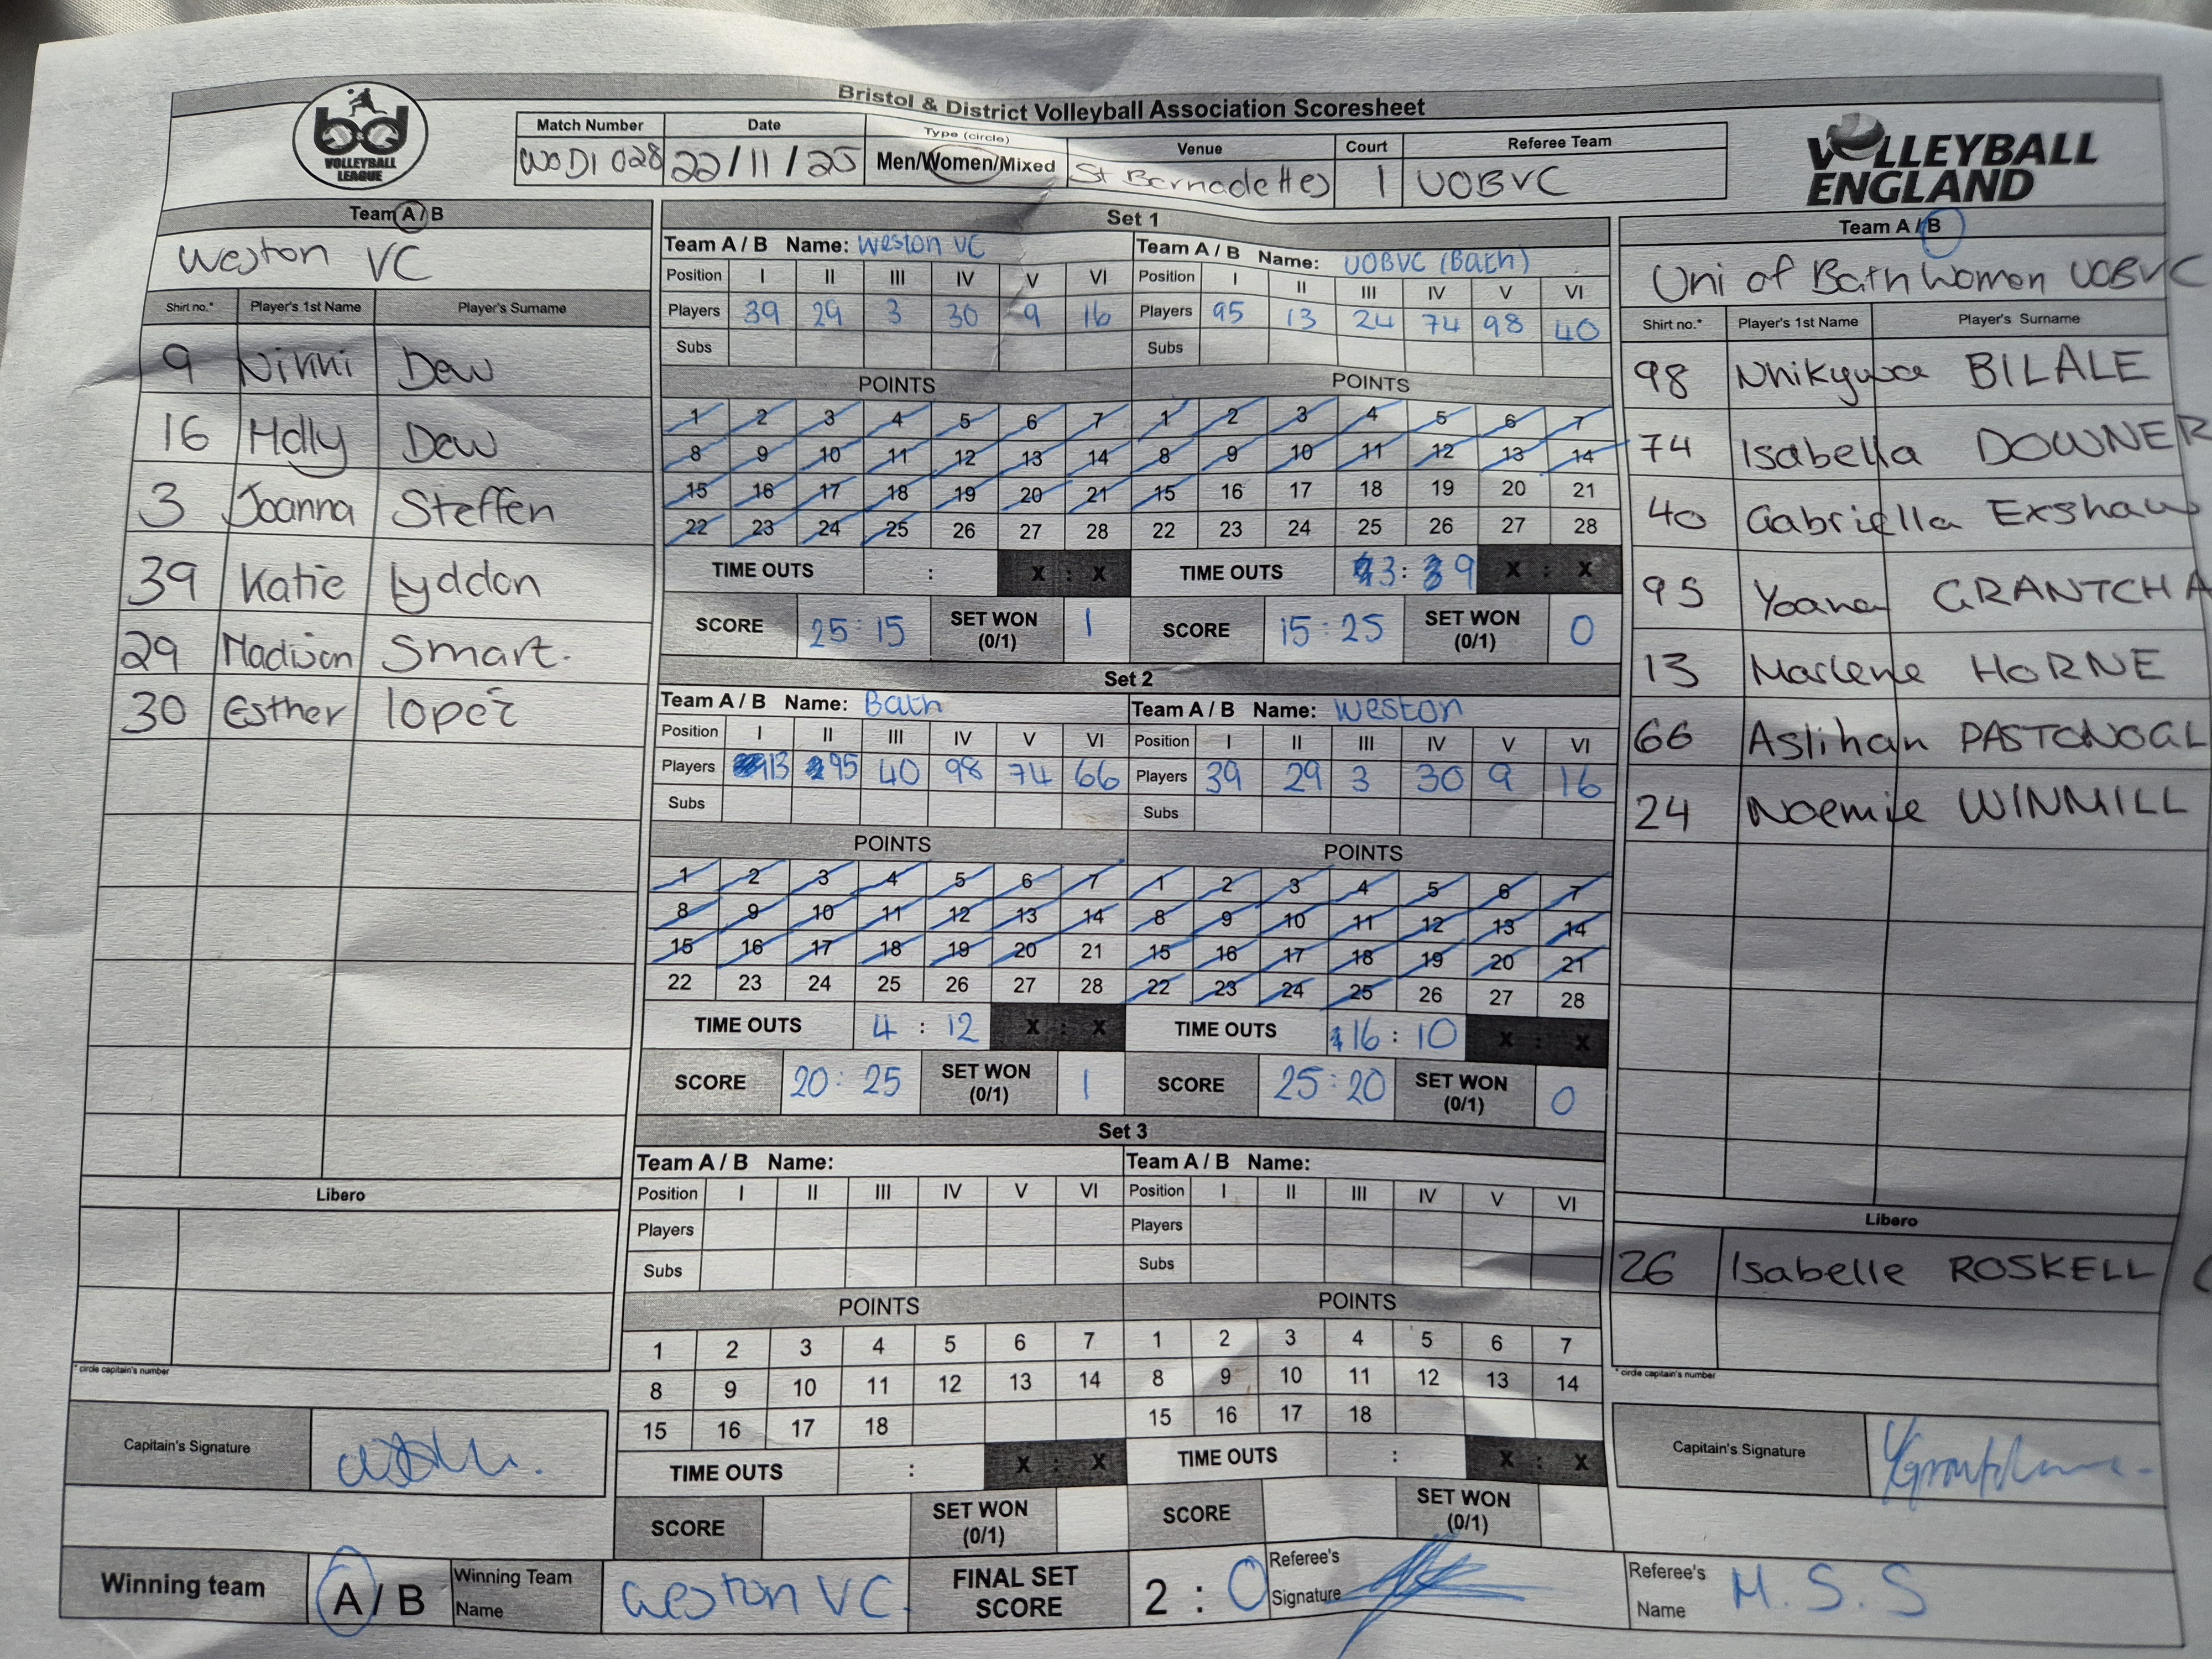 Bristol & District Volleyball Association Scoresheet
bd VOLLEYBALL LEAGUE
Match Number Date Type (circle) Venue Court Referee Team
WODI 028 22/11/25 Men/Women/Mixed St Bernadettes 1 UOBVC
VOLLEYBALL ENGLAND
Team A / B
Weston VC
Shirt no.* Player's 1st Name Player's Surname
9 Ninni Dew
16 Holly Dew
3 Joanna Steffen
39 Katie Lyddon
29 Madison Smart.
30 Esther lopez
Libero
* circle capitain's number
Capitain's Signature
Set 1
Team A / B Name: Weston VC
Position I II III IV V VI
Players 39 29 3 30 9 16
Subs
POINTS
1 2 3 4 5 6 7
8 9 10 11 12 13 14
15 16 17 18 19 20 21
22 23 24 25 26 27 28
TIME OUTS : X : X
SCORE 25:15 SET WON (0/1) 1
Team A / B Name: UOBVC (Bath)
Position I II III IV V VI
Players 95 13 24 74 98 40
Subs
POINTS
1 2 3 4 5 6 7
8 9 10 11 12 13 14
15 16 17 18 19 20 21
22 23 24 25 26 27 28
TIME OUTS 3 : 9 X : X
SCORE 15:25 SET WON (0/1) 0
Set 2
Team A / B Name: Bath
Position I II III IV V VI
Players 13 95 40 98 74 66
Subs
POINTS
1 2 3 4 5 6 7
8 9 10 11 12 13 14
15 16 17 18 19 20 21
22 23 24 25 26 27 28
TIME OUTS 4 : 12 X : X
SCORE 20:25 SET WON (0/1) 1
Team A / B Name: Weston
Position I II III IV V VI
Players 39 29 3 30 9 16
Subs
POINTS
1 2 3 4 5 6 7
8 9 10 11 12 13 14
15 16 17 18 19 20 21
22 23 24 25 26 27 28
TIME OUTS 16 : 10 X : X
SCORE 25:20 SET WON (0/1) 0
Set 3
Team A / B Name:
Position I II III IV V VI
Players
Subs
POINTS
1 2 3 4 5 6 7
8 9 10 11 12 13 14
15 16 17 18
TIME OUTS : X : X
SCORE SET WON (0/1)
Team A / B Name:
Position I II III IV V VI
Players
Subs
POINTS
1 2 3 4 5 6 7
8 9 10 11 12 13 14
15 16 17 18
TIME OUTS : X : X
SCORE SET WON (0/1)
Team A / B
Uni of Bath Women UOBVC
Shirt no.* Player's 1st Name Player's Surname
98 BILALE
74 Isabella DOWNER
40 Gabriella Exshaw
95 Yoana GRANTCHA
13 Marlene HORNE
66 Aslihan
24 Noemie WINMILL
Libero
26 Isabelle ROSKELL (
* circle capitain's number
Capitain's Signature
Winning team A / B Winning Team Name Weston VC. FINAL SET SCORE 2 : 0 Referee's Signature Referee's Name M. S. S